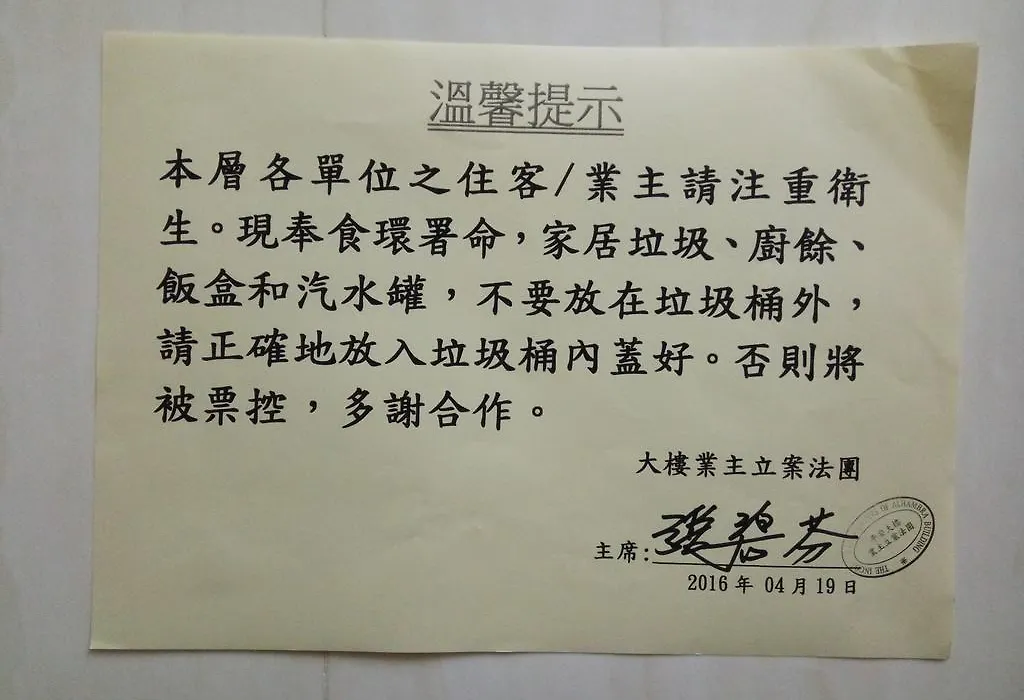 溫馨提示
本層各單位之住客/業主請注重衛
生。現奉食環署命，家居垃圾、廚餘、
飯盒和汽水罐，不要放在垃圾桶外，
請正確地放入垃圾桶內蓋好。否則將
被票控，多謝合作。
大樓業主立案法團
主席:
2016年 04月19日
OF ALHAMBRA BUILDING
業主立案法團